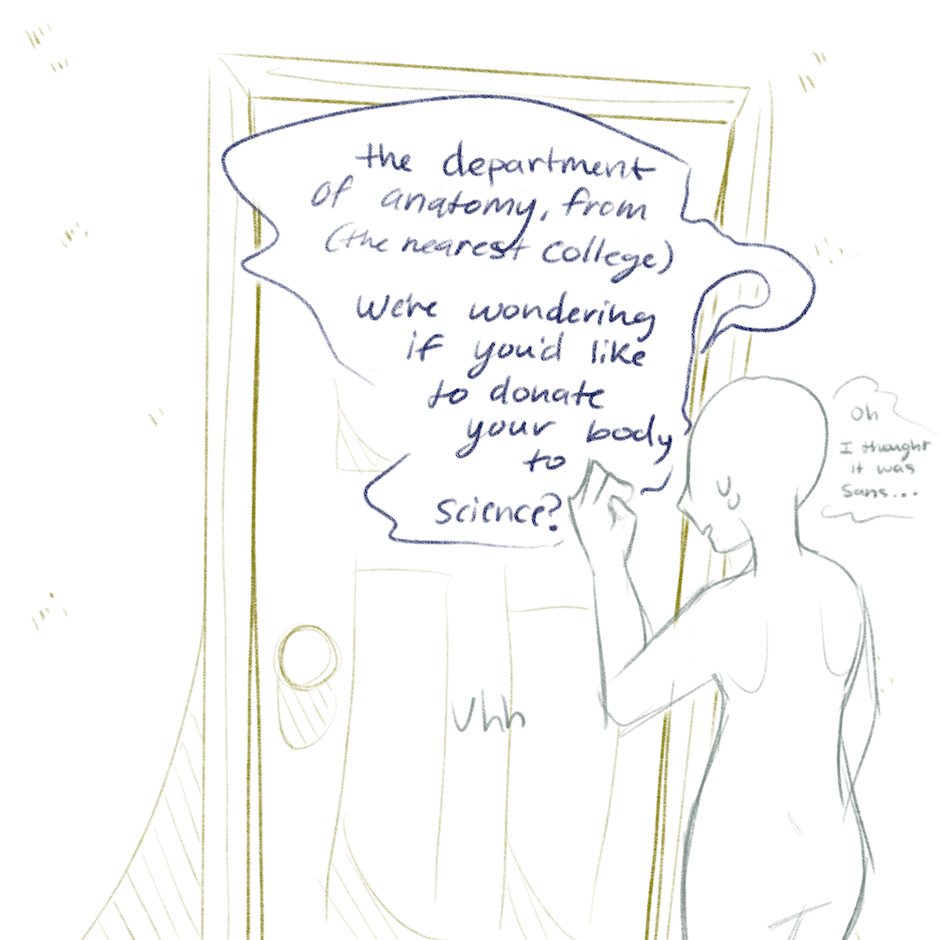 the department
of anatomy, from
(the nearest college)
We're wondering
if you'd like
to donate
your body
to
science?
oh
I thought
it was
Sans...
Uhh